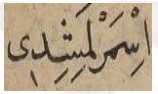 اسمرلمشدى